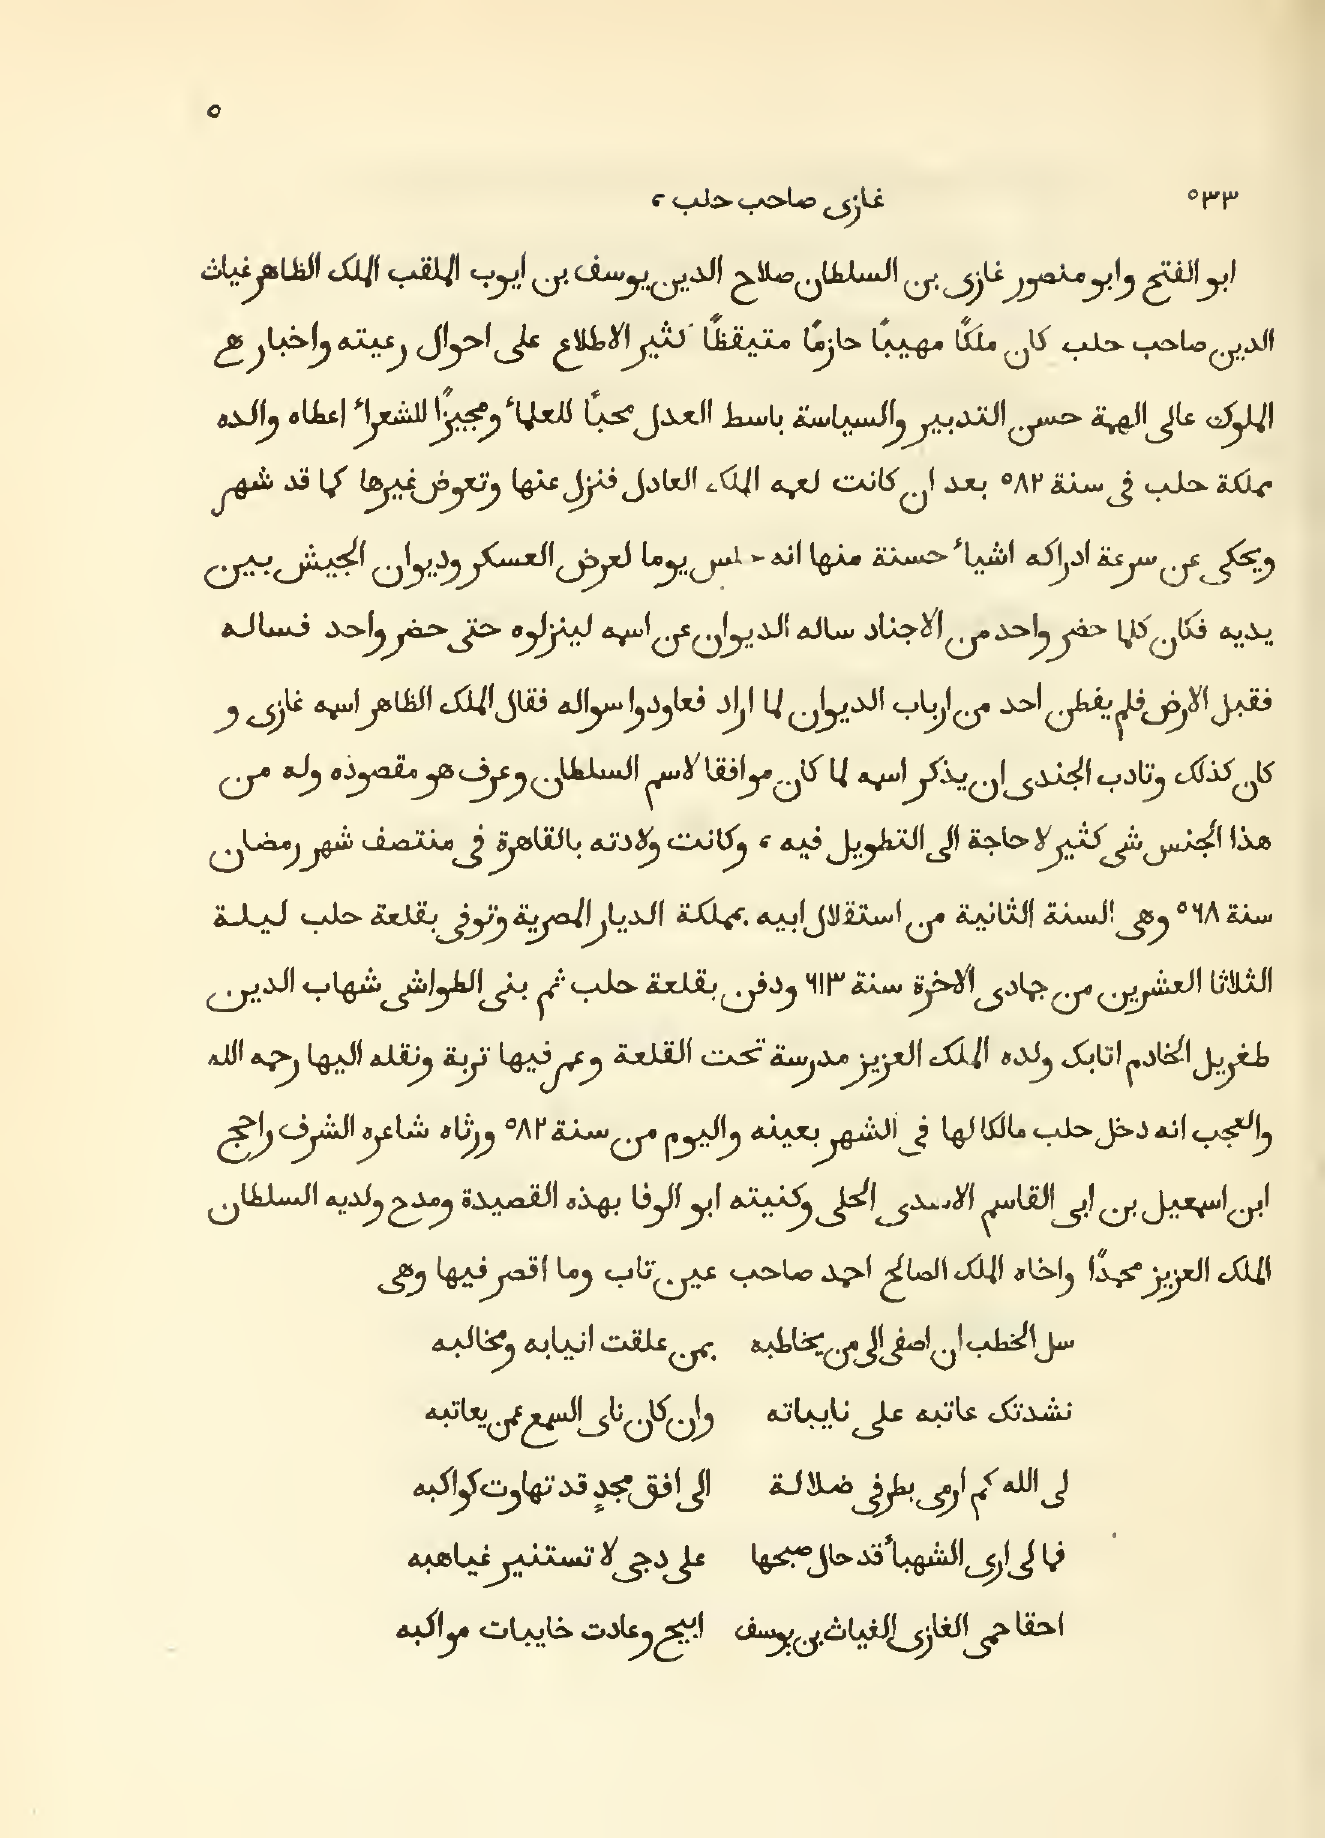 ٥
٥٣٣ غازى صاحب حلب ،
ابو الفتح وابو منصور غازى بن السلطان صلاح الدين يوسف بن ايوب الملقب الملك الظاهر غياث
الدين صاحب حلب كان ملكًا مهيبًا حازمًا متيقظًا كثير الاطلاع على احوال رعيته واخبار هم
الملوك عالى الهمة حسن التدبير والسياسة باسط العدل محبًّا للعلمآء ومجيزًا للشعرآء اعطاه والده
مملكة حلب فى سنة ٥٨٢ بعد ان كانت لعمه الملك العادل فنزل عنها وتعوض غيرها كما قد شهر
ويحكى عن سرعة ادراكه اشيآء حسنة منها انه جلس يوما لعرض العسكر وديوان الجيش بين
يديه فكان كلما حضر واحد من الاجناد ساله الديوان عن اسمه لينزلوه حتى حضر واحد فساله
فقبل الارض فلم يفطن احد من ارباب الديوان لما اراد فعاودوا سواله فقال الملك الظاهر اسمه غازى و
كان كذلك وتادب الجندى ان يذكر اسمه لما كان موافقا لاسم السلطان وعرف هو مقصوذه وله من
هذا الجنس شى كثير لا حاجة الى التطويل فيه ، وكانت ولادته بالقاهرة فى منتصف شهر رمضان
سنة ٥٦٨ وهى السنة الثانية من استقلال ابيه بمملكة الديار المصرية وتوفى بقلعة حلب ليلة
الثلاثا العشرين من جمادى الاخرة سنة ٦١٣ ودفن بقلعة حلب ثم بنى الطواشى شهاب الدين
طغريل الخادم اتابك ولده الملك العزيز مدرسة تحت القلعة وعمر فيها تربة ونقله اليها رحمه الله
والعجب انه دخل حلب مالكا لها فى الشهر بعينه واليوم من سنة ٥٨٢ ورثاه شاعره الشرف راجح
ابن اسمعيل بن ابى القاسم الاسدى الحلى وكنيته ابو الوفا بهذه القصيدة ومدح ولديه السلطان
الملك العزيز محمدًا واخاه الملك الصالح احمد صاحب عين تاب وما اقصر فيها وهى
سل الخطب ان اصغى الى من يخاطبه بمن علقت انيابه ومخالبه
نشدتك عاتبه على نايباته وان كان ناى السمع عمن يعاتبه
لى الله كم ارمى بطرفى ضلالة الى افق مجدٍ قد تهاوت كواكبه
فما لى ارى الشهبآء قد حال صبحها على دجى لا تستنير غياهبه
احقا حمى الغازى الغياث بن يوسف ابيح وعادت خايبات مواكبه